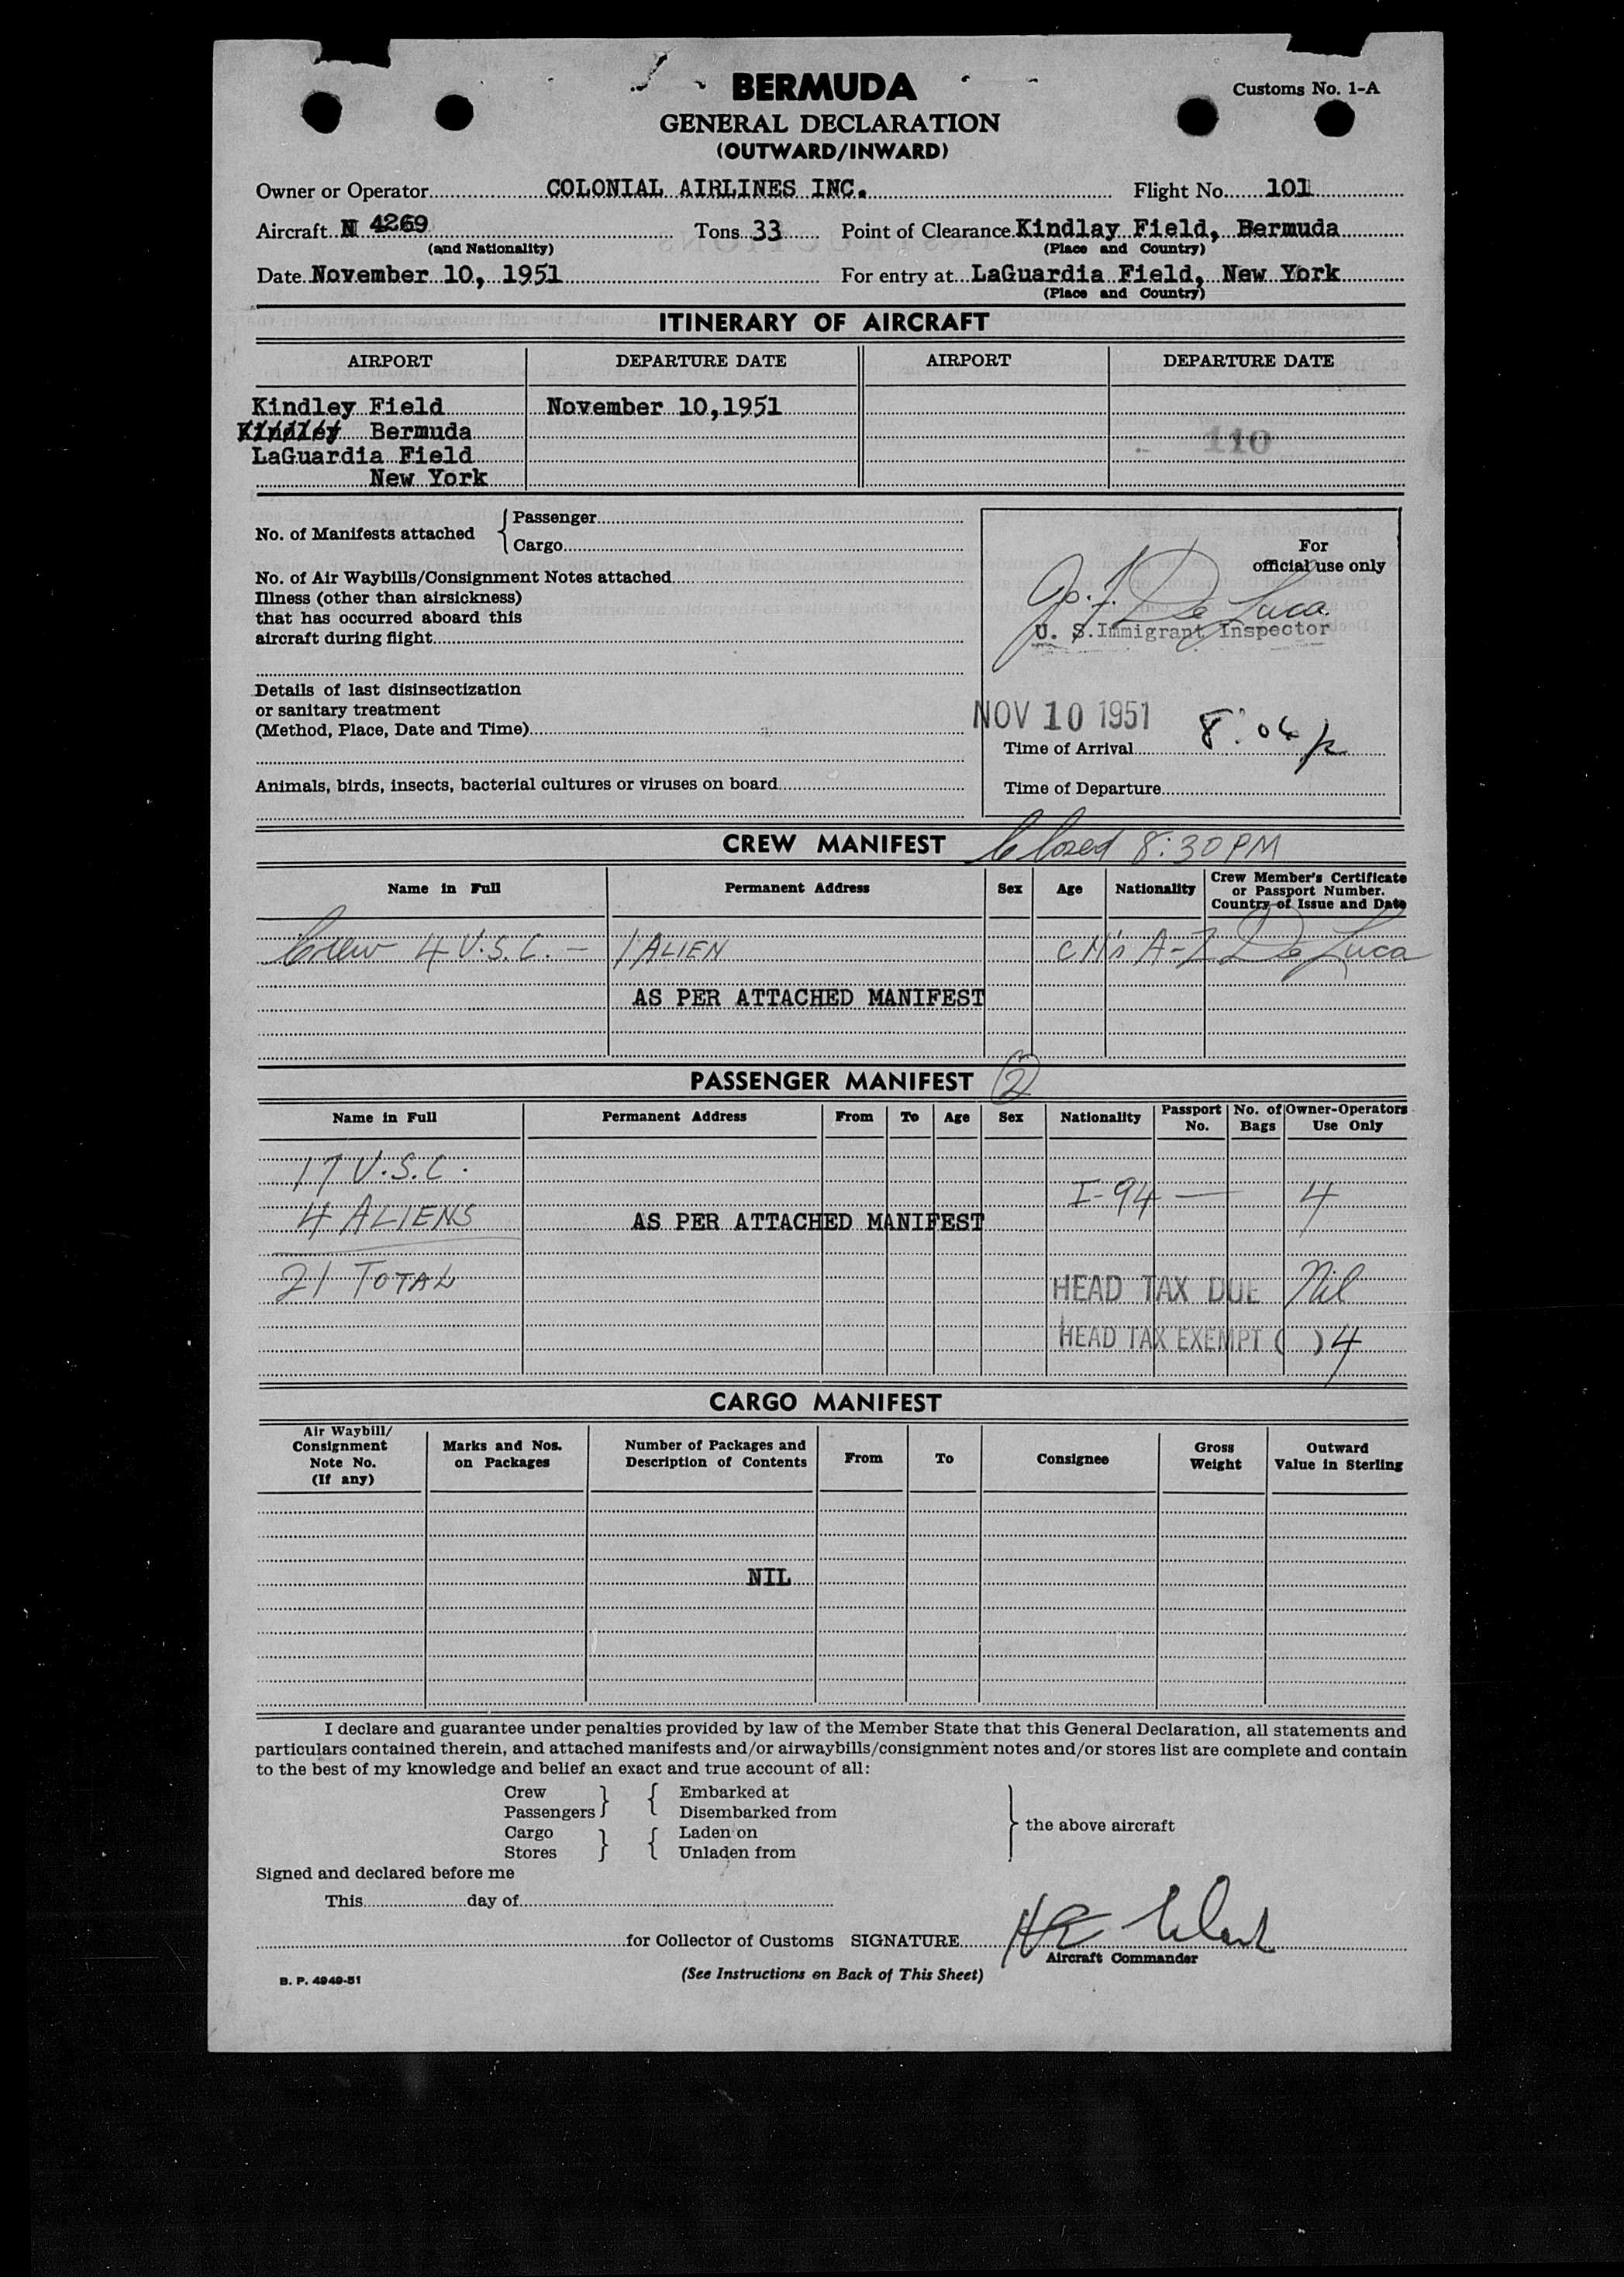 BERMUDA
Customs No. 1-A
GENERAL DECLARATION
(OUTWARD/INWARD)
Owner or Operator COLONIAL AIRLINES INC. Flight No. 101
Aircraft N 4269 Tons 33 Point of Clearance Kindlay Field, Bermuda
(and Nationality) (Place and Country)
Date November 10, 1951 For entry at LaGuardia Field, New York
(Place and Country)
ITINERARY OF AIRCRAFT
AIRPORT DEPARTURE DATE AIRPORT DEPARTURE DATE
Kindley Field November 10,1951
Kindley Bermuda
110
LaGuardia Field
New York
No. of Manifests attached { Passenger
Cargo
For
official use only
No. of Air Waybills/Consignment Notes attached
Illness (other than airsickness)
that has occurred aboard this
aircraft during flight
De Luca
U. S. Immigrant Inspector
Details of last disinsectization
or sanitary treatment
(Method, Place, Date and Time)
NOV 10 1951
Time of Arrival 8:04 p
Animals, birds, insects, bacterial cultures or viruses on board
Time of Departure
CREW MANIFEST Closed 8:30 PM
Name in Full Permanent Address Sex Age Nationality Crew Member's Certificate
or Passport Number.
Country of Issue and Date
Crew 4 U.S.C. - 1 ALIEN CM's A-Z De Luca
AS PER ATTACHED MANIFEST
PASSENGER MANIFEST 2
Name in Full Permanent Address From To Age Sex Nationality Passport No. No. of Bags Owner-Operators Use Only
17 U.S.C.
I-94 — 4
4 ALIENS AS PER ATTACHED MANIFEST
21 TOTAL HEAD TAX DUE Nil
HEAD TAX EXEMPT ( ) 4
CARGO MANIFEST
Air Waybill/
Consignment
Note No.
(If any)
Marks and Nos.
on Packages
Number of Packages and
Description of Contents
From To Consignee
Gross
Weight
Outward
Value in Sterling
NIL
I declare and guarantee under penalties provided by law of the Member State that this General Declaration, all statements and
particulars contained therein, and attached manifests and/or airwaybills/consignment notes and/or stores list are complete and contain
to the best of my knowledge and belief an exact and true account of all:
Crew } { Embarked at
Passengers Disembarked from
Cargo } { Laden on
Stores Unladen from
} the above aircraft
Signed and declared before me
This day of
for Collector of Customs SIGNATURE
Aircraft Commander
B. P. 4949-51
(See Instructions on Back of This Sheet)